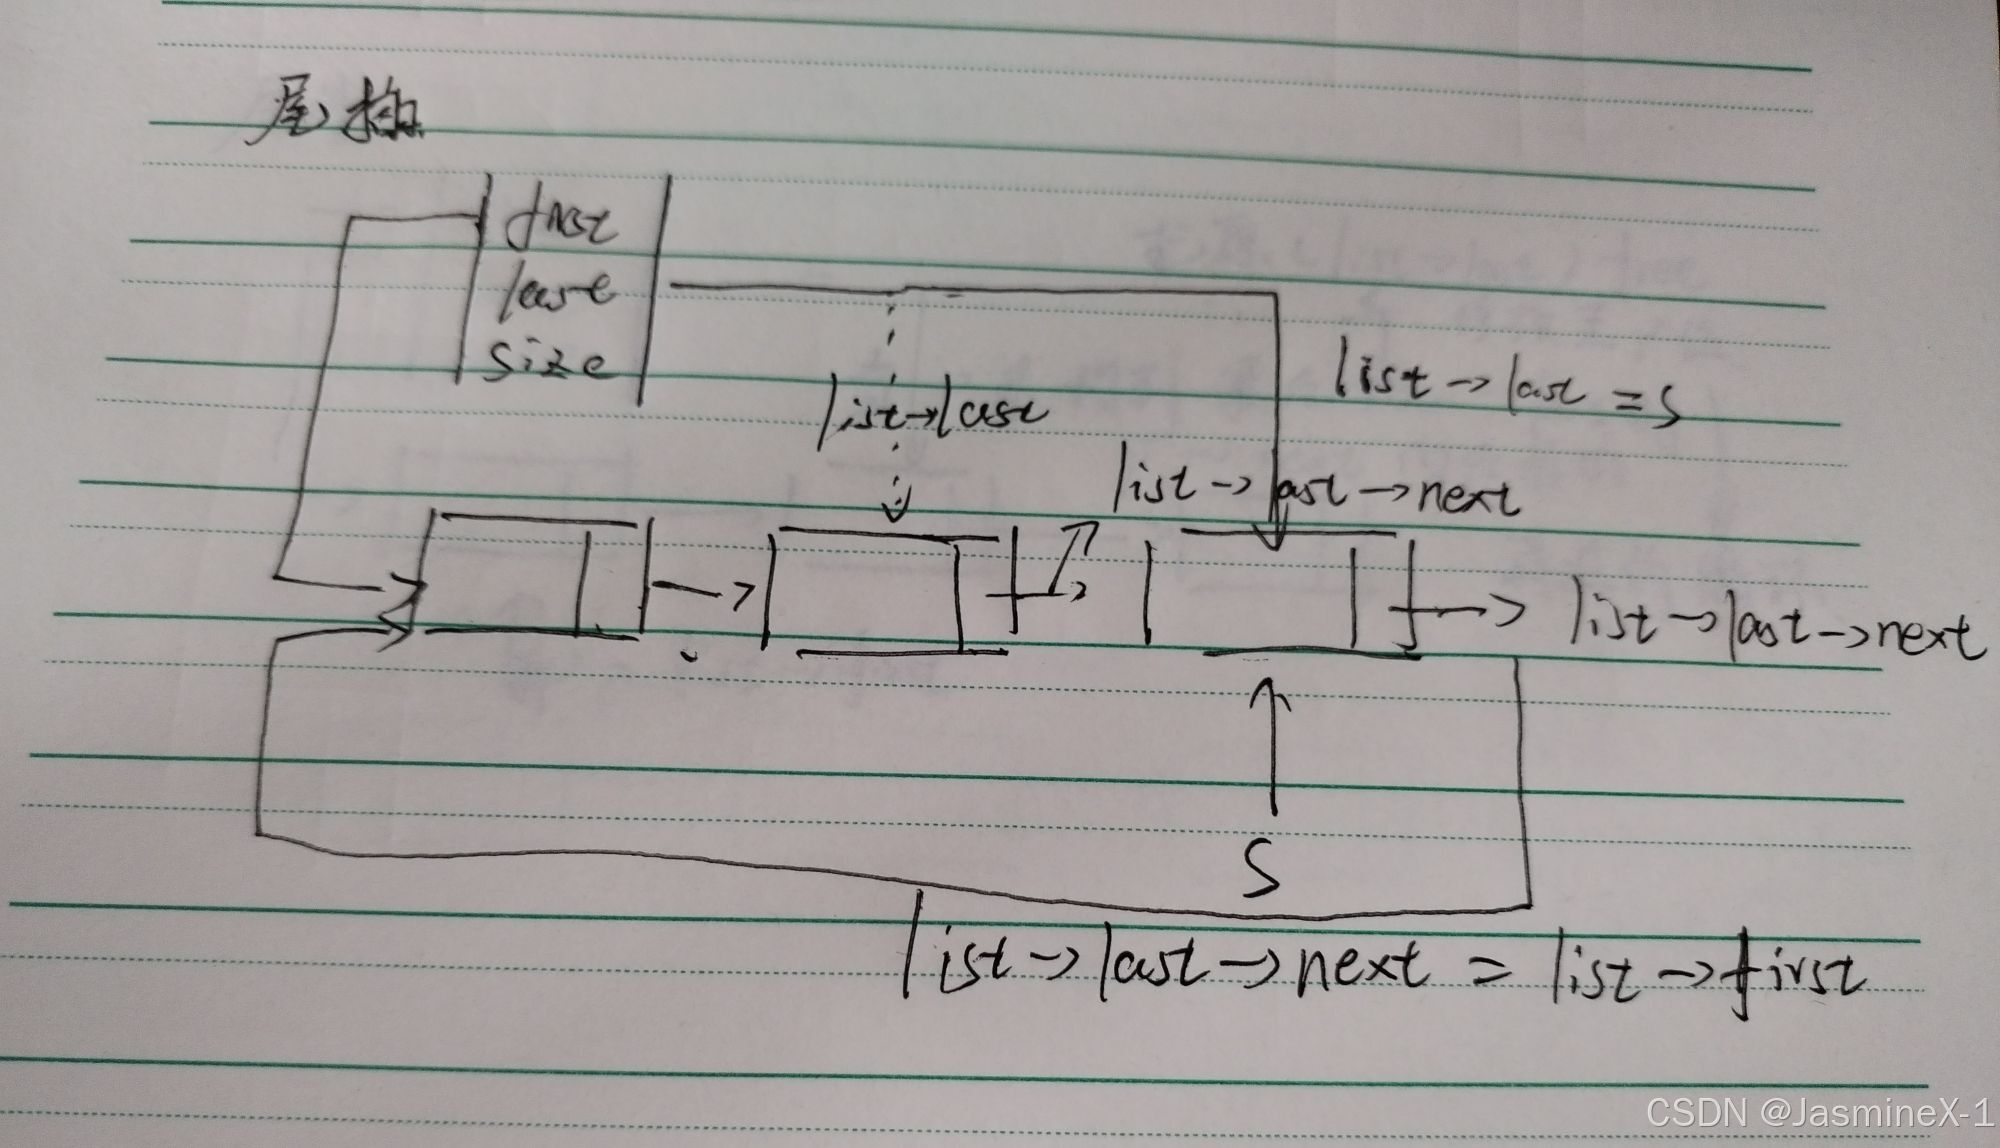 尾插
first
last
size
list→last = s
list→last
list→last→next
list→last→next
S
list→last→next = list→first
CSDN @JasmineX-1